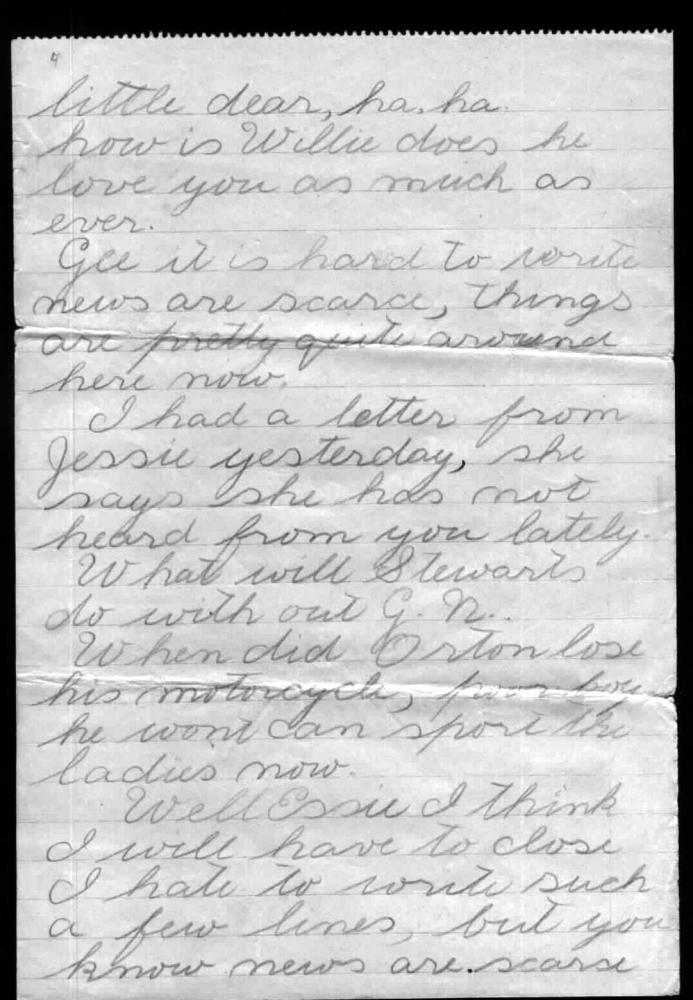 4
little dear, ha. ha.
how is Willie does he
love you as much as
ever.
Gee it is hard to write
news are scarce, things
are pretty quite around
here now.
I had a letter from
Jessie yesterday, she
says she has not
heard from you lately.
What will Stewarts
do with out G. N..
When did Orton lose
his motorcycle, poor boy
he wont can sport the
ladies now.
Well Essie I think
I will have to close
I hate to write such
a few lines, but you
know news are scarse